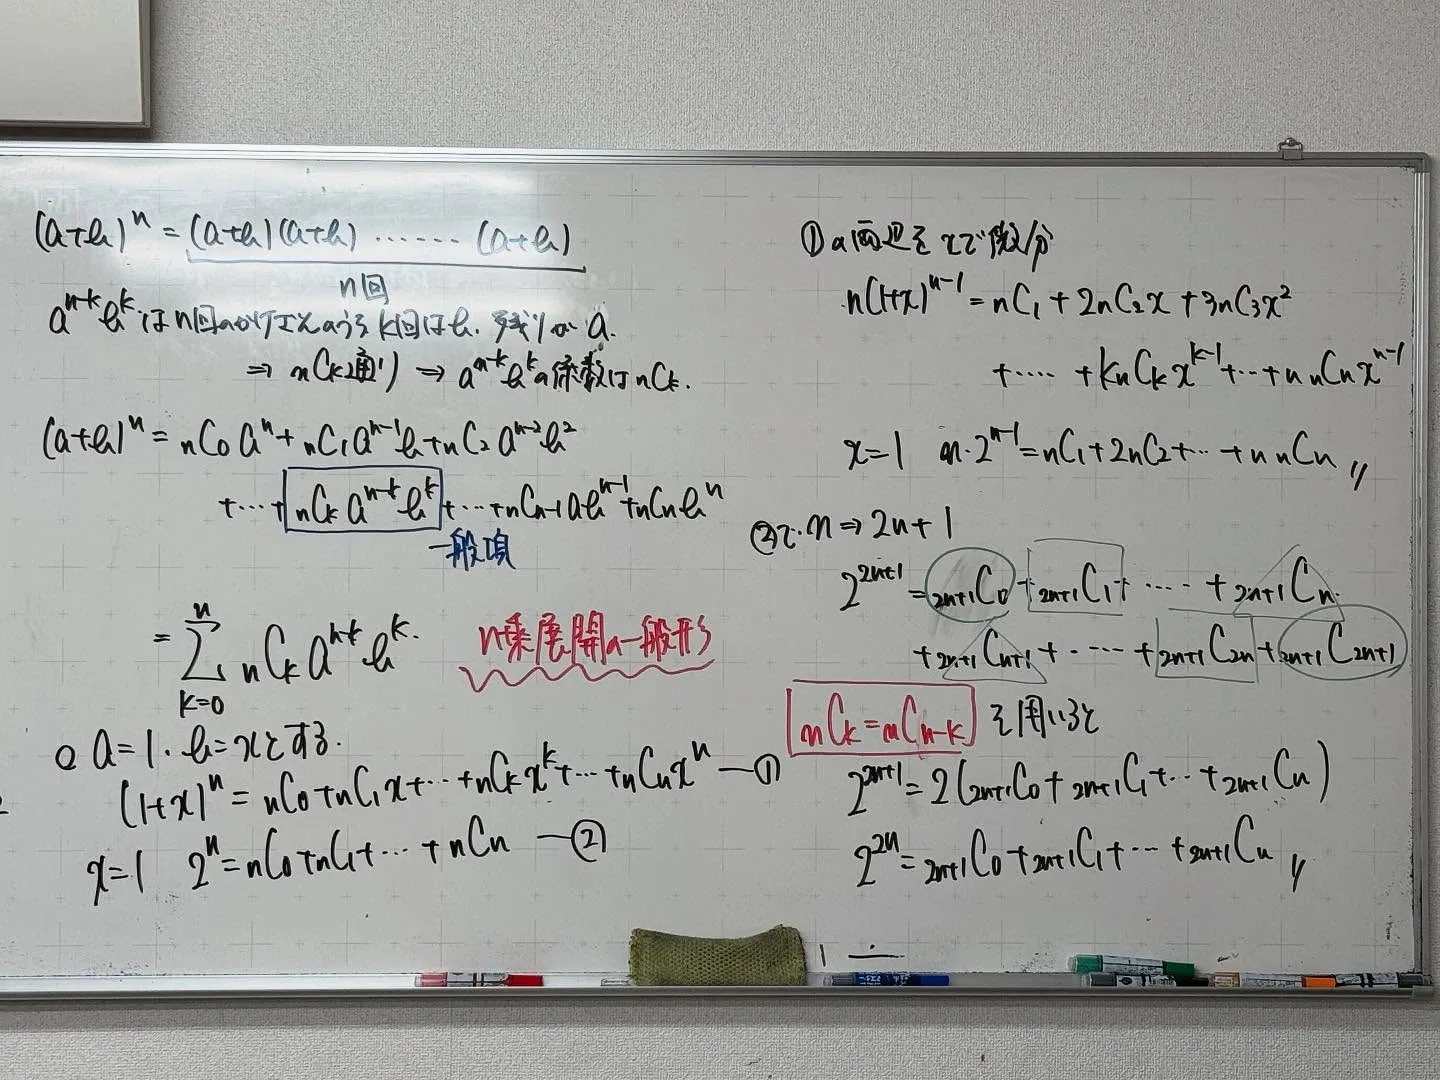 (a+b)^n = (a+b)(a+b) ‥‥‥ (a+b)
n回
a^{n-k}b^k は n回のかけざんのうち k回は b. 残りが a.
⇒ nCk通り ⇒ a^{n-k}b^kの係数は nCk.
(a+b)^n = nC0 a^n + nC1 a^{n-1}b + nC2 a^{n-2}b^2
+ ‥‥ + nCk a^{n-k}b^k + ‥‥ + nCn-1 ab^{n-1} + nCn b^n
一般項
= Σ_{k=0}^{n} nCk a^{n-k}b^k.
n乗展開の一般形
○ a=1. b=xとする.
(1+x)^n = nC0 + nC1 x + ‥‥ + nCk x^k + ‥‥ + nCn x^n —①
x=1 2^n = nC0 + nC1 + ‥‥ + nCn —②
①の両辺を xで微分
n(1+x)^{n-1} = nC1 + 2nC2x + 3nC3x^2
+ ‥‥ + knCkx^{k-1} + ‥‥ + n nCnx^{n-1}
x=1 n・2^{n-1} = nC1 + 2nC2 + ‥‥ + n nCn 〃
②で. n ⇒ 2n+1
2^{2n+1} = 2n+1C0 + 2n+1C1 + ‥‥ + 2n+1Cn.
+ 2n+1Cn+1 + ‥‥ + 2n+1C2n + 2n+1C2n+1
nCk = nCn-k を用いると
2^{2n+1} = 2(2n+1C0 + 2n+1C1 + ‥‥ + 2n+1Cn)
2^{2n} = 2n+1C0 + 2n+1C1 + ‥‥ + 2n+1Cn 〃